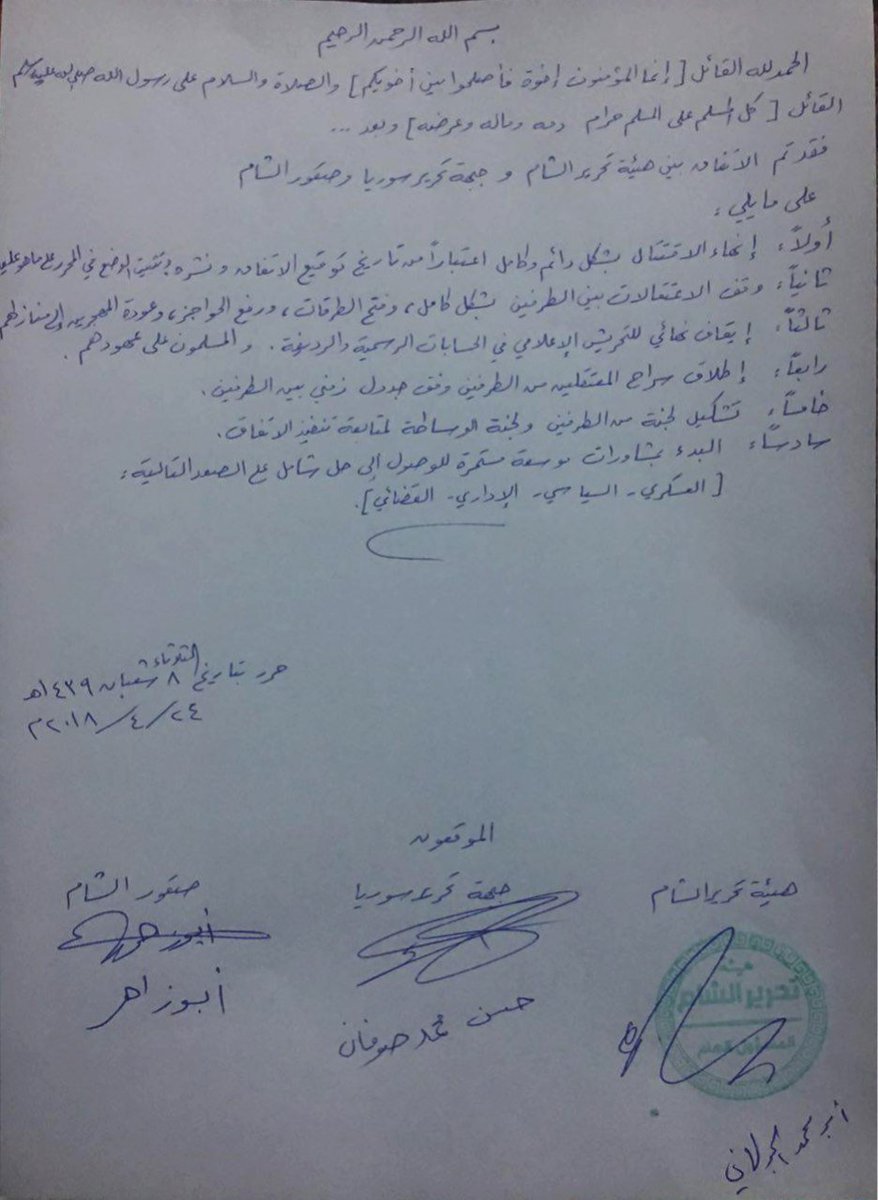 بسم الله الرحمن الرحيم
الحمد لله القائل [إنما المؤمنون إخوة فأصلحوا بين أخويكم] والصلاة والسلام على رسول الله صلى الله عليه وسلم
القائل [كل المسلم على المسلم حرام دمه وماله وعرضه] وبعد ...
فقد تم الاتفاق بين هيئة تحرير الشام و جبهة تحرير سوريا وصقور الشام
على ما يلي:
أولاً: إنهاء الاقتتال بشكل دائم وكامل اعتباراً من تاريخ توقيع الاتفاق ونشره، تثبيت الوضع في المحرر على ما هو عليه
ثانياً: وقف الاعتقالات بين الطرفين بشكل كامل، وفتح الطرقات، ورفع الحواجز، وعودة المهجرين إلى منازلهم
ثالثاً: إيقاف نهائي للتحريش الإعلامي في الحسابات الرسمية والرديفة. والمسلمون على عهودهم.
رابعاً: إطلاق سراح المعتقلين من الطرفين وفق جدول زمني بين الطرفين.
خامساً: تشكيل لجنة من الطرفين ولجنة الوساطة لمتابعة تنفيذ الاتفاق.
سادساً: البدء بمشاورات موسعة مستمرة للوصول إلى حل شامل على الصعد التالية:
[العسكري - السياسي - الإداري - القضائي].
حرر بتاريخ الثلاثاء ٨ شعبان ١٤٣٩هـ
٢٤/٤/٢٠١٨م
الموقعون
هيئة تحرير الشام
جبهة تحرير سوريا
صقور الشام
هيئة
تحرير الشام
المسؤول العام
أبو محمد الجولاني
حسن محمد صوفان
أبو زاهر